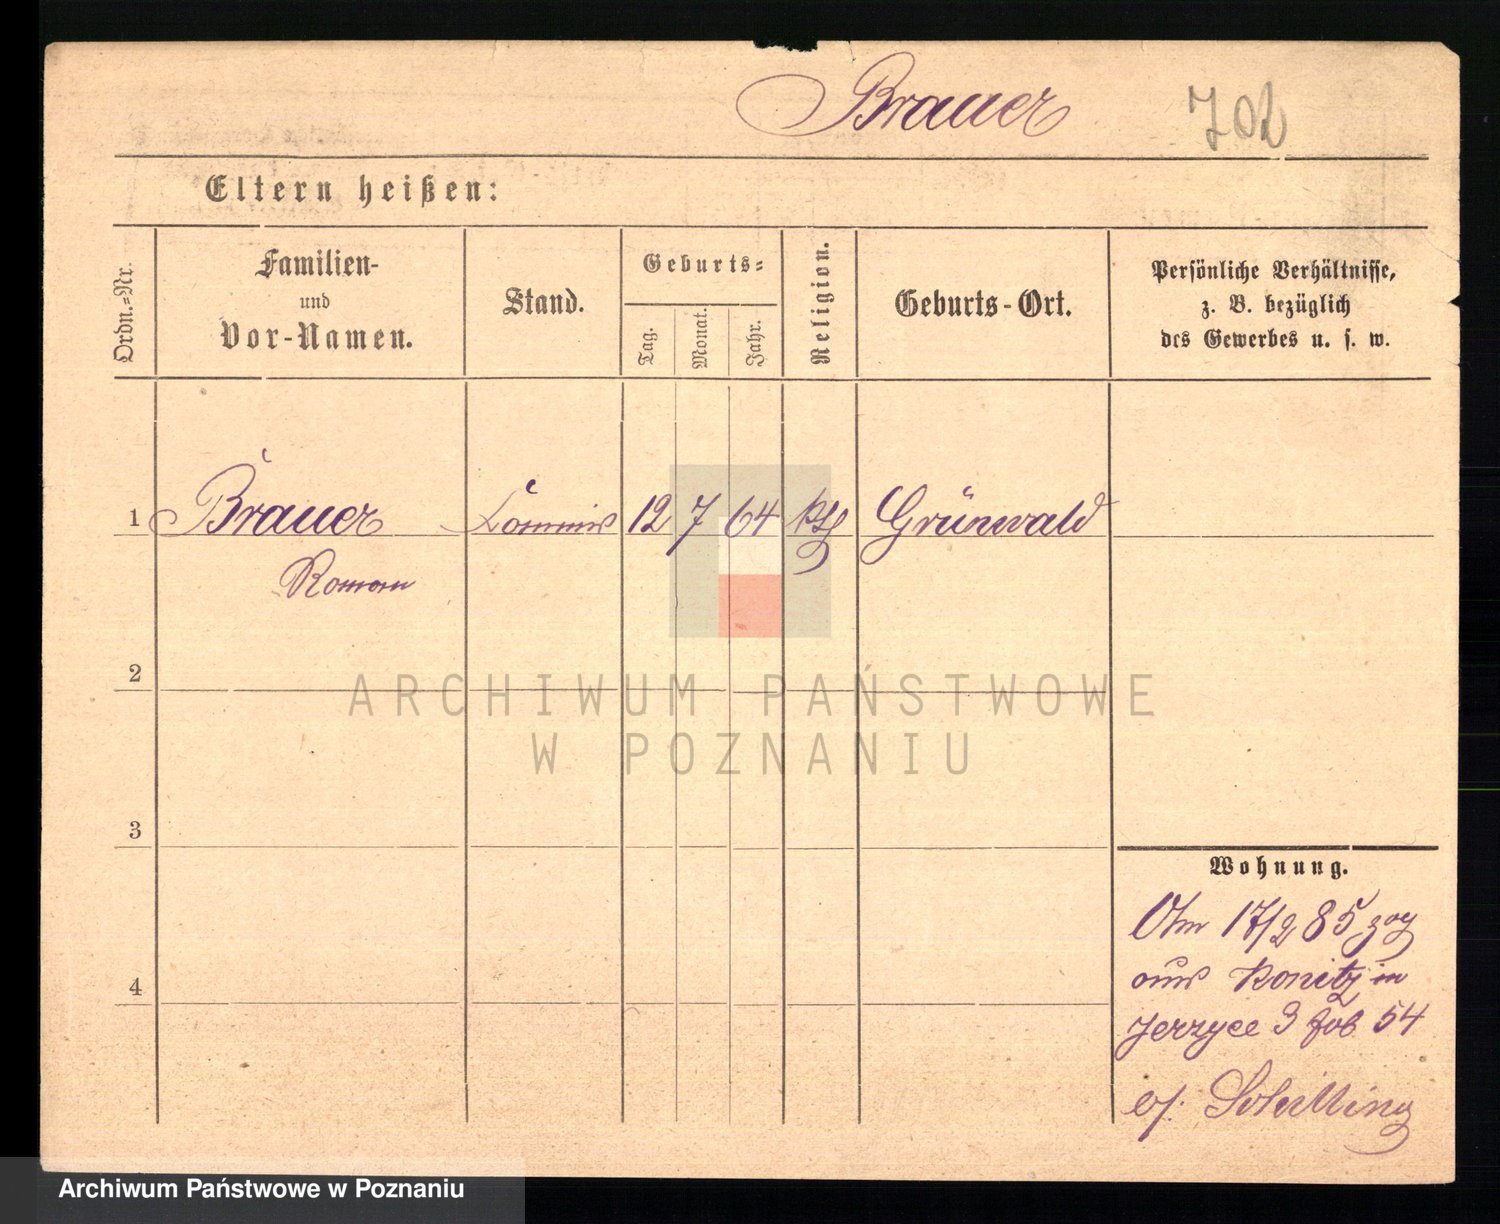 Brauer 702
Eltern heißen:
Ordn.-Nr.
Familien-
und
Vor-Namen.
Stand.
Geburts-
Tag.
Monat.
Jahr.
Religion.
Geburts-Ort.
Persönliche Verhältnisse,
z. B. bezüglich
des Gewerbes u. s. w.
1 Brauer Commis 12 7 64 kth Grünwald
Roman
2
ARCHIWUM PAŃSTWOWE
W POZNANIU
3
Wohnung.
Am 17/2 85 zog
aus Konitz in
4
Jerzyce 3 54
b/. Schilling
Archiwum Państwowe w Poznaniu